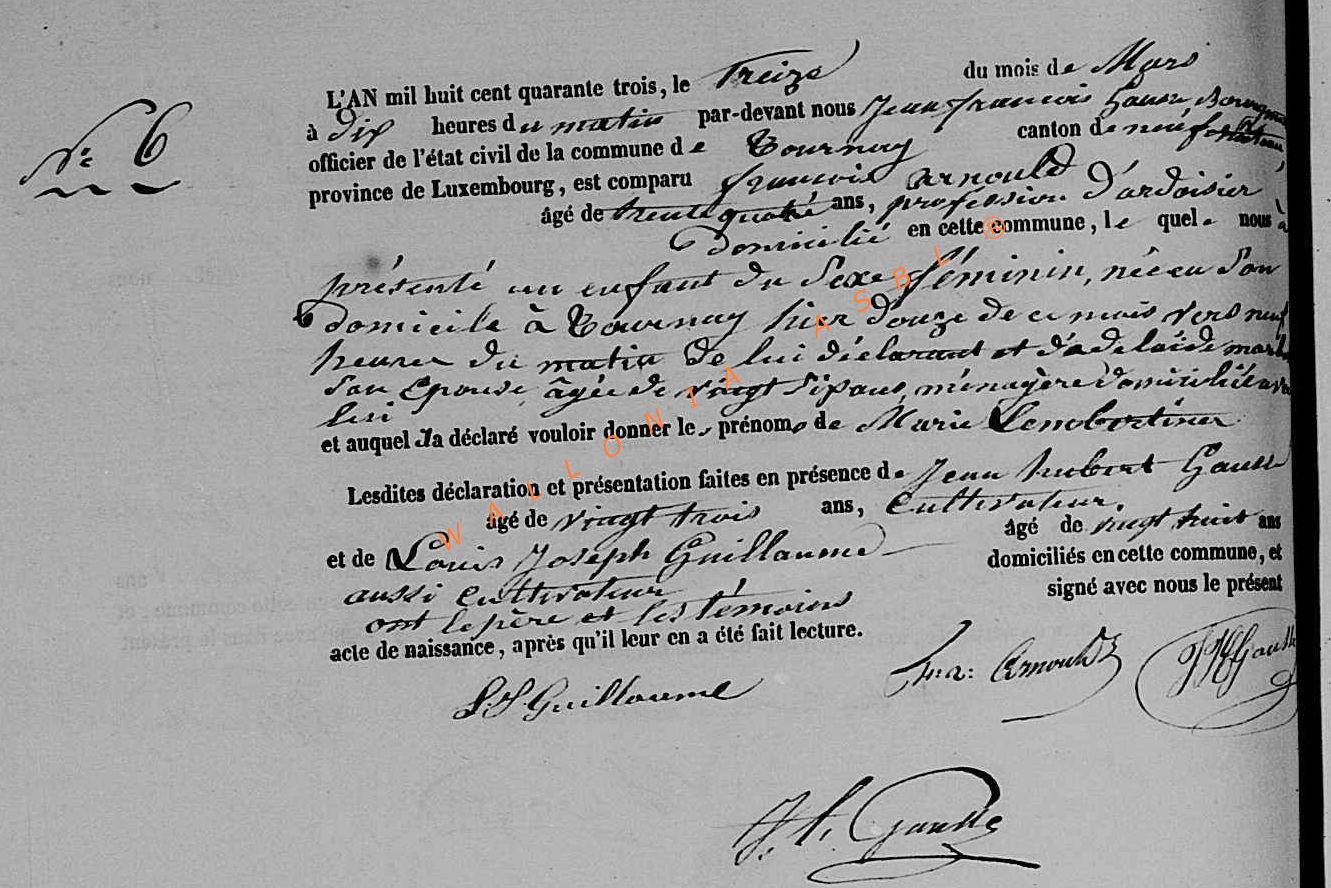 N° 6
L'AN mil huit cent quarante trois, le Treize du mois de Mars
à dix heures du matin par-devant nous Jean françois Gausse
officier de l'état civil de la commune de Tournay canton de neufchateau,
province de Luxembourg, est comparu françois Arnould
âgé de trente quatre ans, profession d'ardoisier
Domicilié en cette commune, le quel nous a
présenté un enfant du Sexe féminin, née en Son
domicile à Tournay hier douze de ce mois vers neuf
heures du matin de lui déclarant et d'adelaïde
Son Epouse, âgée de vingt Six ans, ménagère domiciliée avec
lui
et auquel Il a déclaré vouloir donner les prénoms de Marie
Lesdites déclaration et présentation faites en présence de Jean hubert Gausse
âgé de vingt trois ans, Cultivateur.
et de Louis Joseph Guillaume âgé de vingt huit ans
aussi Cultivateur domiciliés en cette commune, et
ont le père et les témoins signé avec nous le présent
acte de naissance, après qu'il leur en a été fait lecture.
Arnould JHGausse
LJ Guillaume
J. f. Gausse
WALLONIA ASBL ©